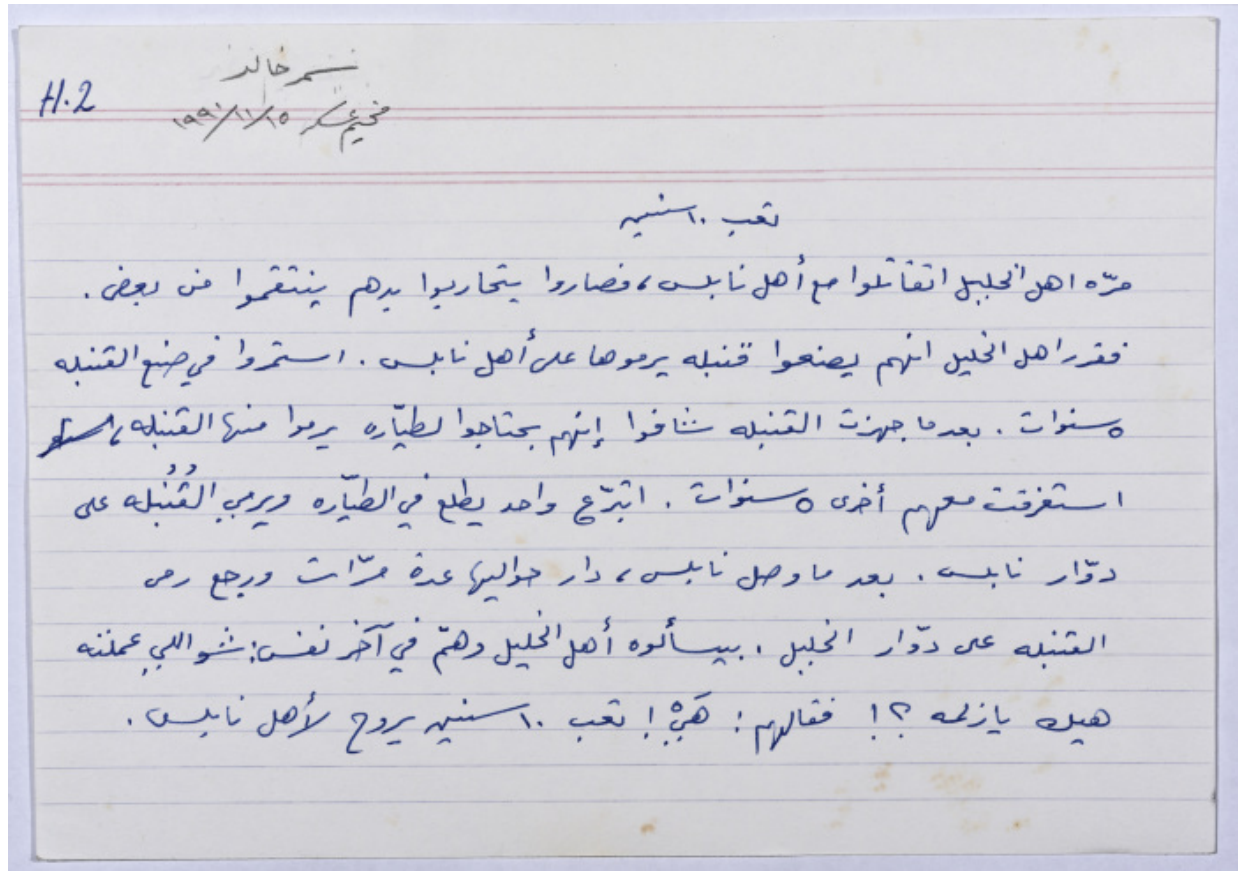 H.2
سمر خالد
مخيم عسكر ١٥/١١/١٩٩١
تعب ١٠ سنين
مرّه اهل الخليل اتقاتلوا مع أهل نابلس، فصاروا يتحاربوا بدهم ينتقموا من بعض.
فقرر اهل الخليل انهم يصنعوا قنبله يرموها على أهل نابلس. استمروا في صنع القنبله
٥ سنوات. بعد ما جهزت القنبله شافوا إنهم بحتاجوا لطيّاره يرموا منها القنبله،
استغرقت معهم أخرى ٥ سنوات. اتبرّع واحد يطلع في الطيّاره ويرمي القُنُبله على
دوّار نابلس. بعد ما وصل نابلس، دار حواليها عدة مرّات ورجع رمى
القنبله على دوّار الخليل. بيسألوه أهل الخليل وهمّ في آخر نفس: شو اللي عملته
هيك يا زلمه ؟! فقالهم: هَيْ! تعب ١٠ سنين يروح لأهل نابلس.